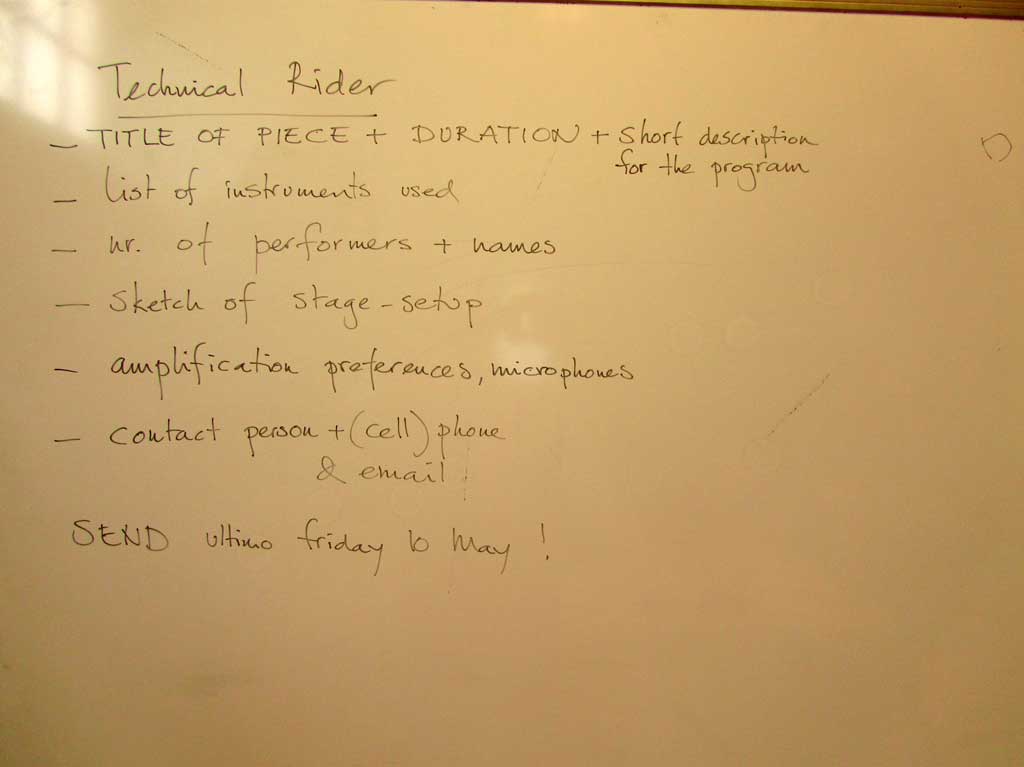 Technical Rider
— TITLE OF PIECE + DURATION + short description
for the program
— list of instruments used
— nr. of performers + names
— sketch of stage-setup
— amplification preferences, microphones
— contact person + (cell) phone
& email
SEND ultimo friday 10 May !